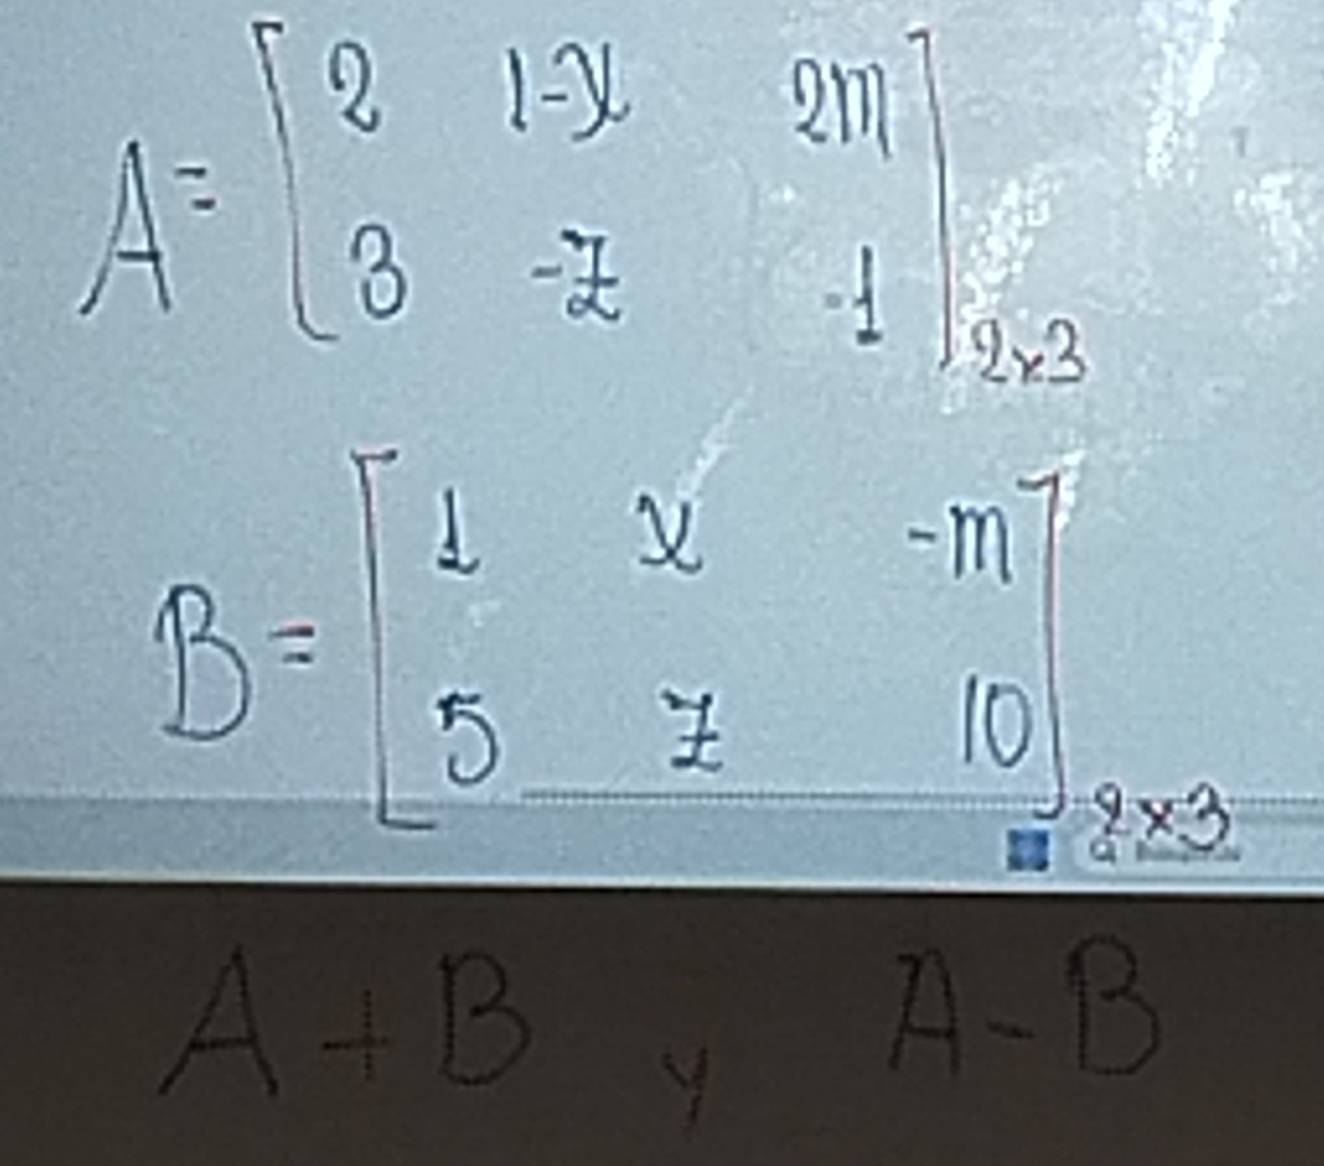 A = [ 2 1-x 2m
3 -z -1 ] 2x3
B = [ 1 x -m
5 z 10 ] 2x3
A + B y A - B